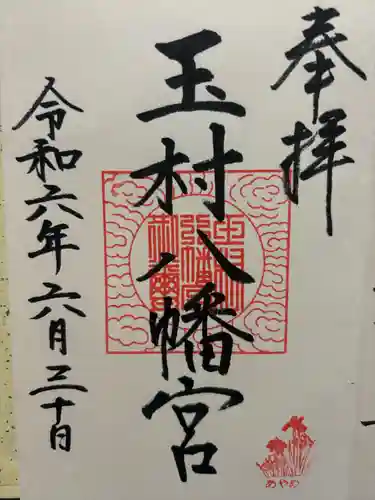 奉拝
玉村八幡宮
令和六年六月三十日
あやめ